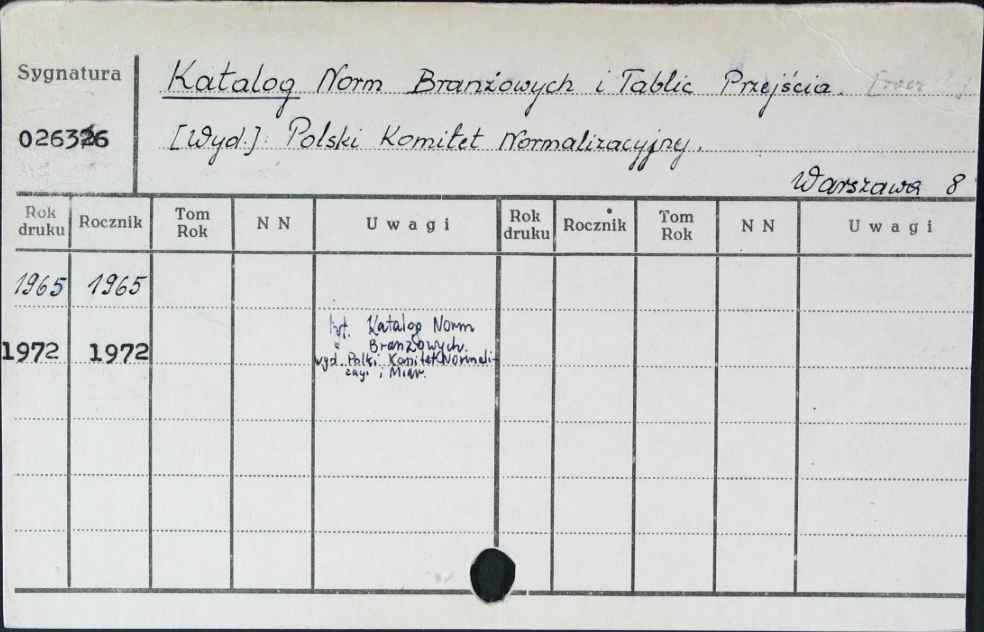 Sygnatura
Katalog Norm Branżowych i Tablic Przejścia.
026326
[Wyd.] Polski Komitet Normalizacyjny.
Warszawa 8
Rok druku Rocznik Tom Rok N N Uwagi Rok druku Rocznik Tom Rok N N Uwagi
1965 1965
Katalog Norm
1972 1972 Branżowych.
wyd. Polski Komitet Normali-
zacji i Miar.